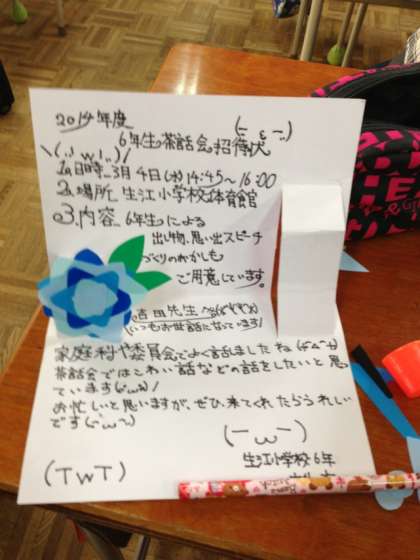 2014年度
6年生茶話会招待状
1.日時…3月4日(水)14:45〜16:00
2.場所…生江小学校体育館
3.内容…6年生による
出し物、思い出スピーチ
づくりのおかしも
ご用意しています。
吉田先生へ
いつもお世話になっています!
家庭科や委員会でよく話しましたね
茶話会ではこわい話などの話をしたいと思
ています(・ω・)!
お忙しいと思いますが、ぜひ、来てくれたらうれしい
です
(ーωー)
生江小学校6年
(TwT)